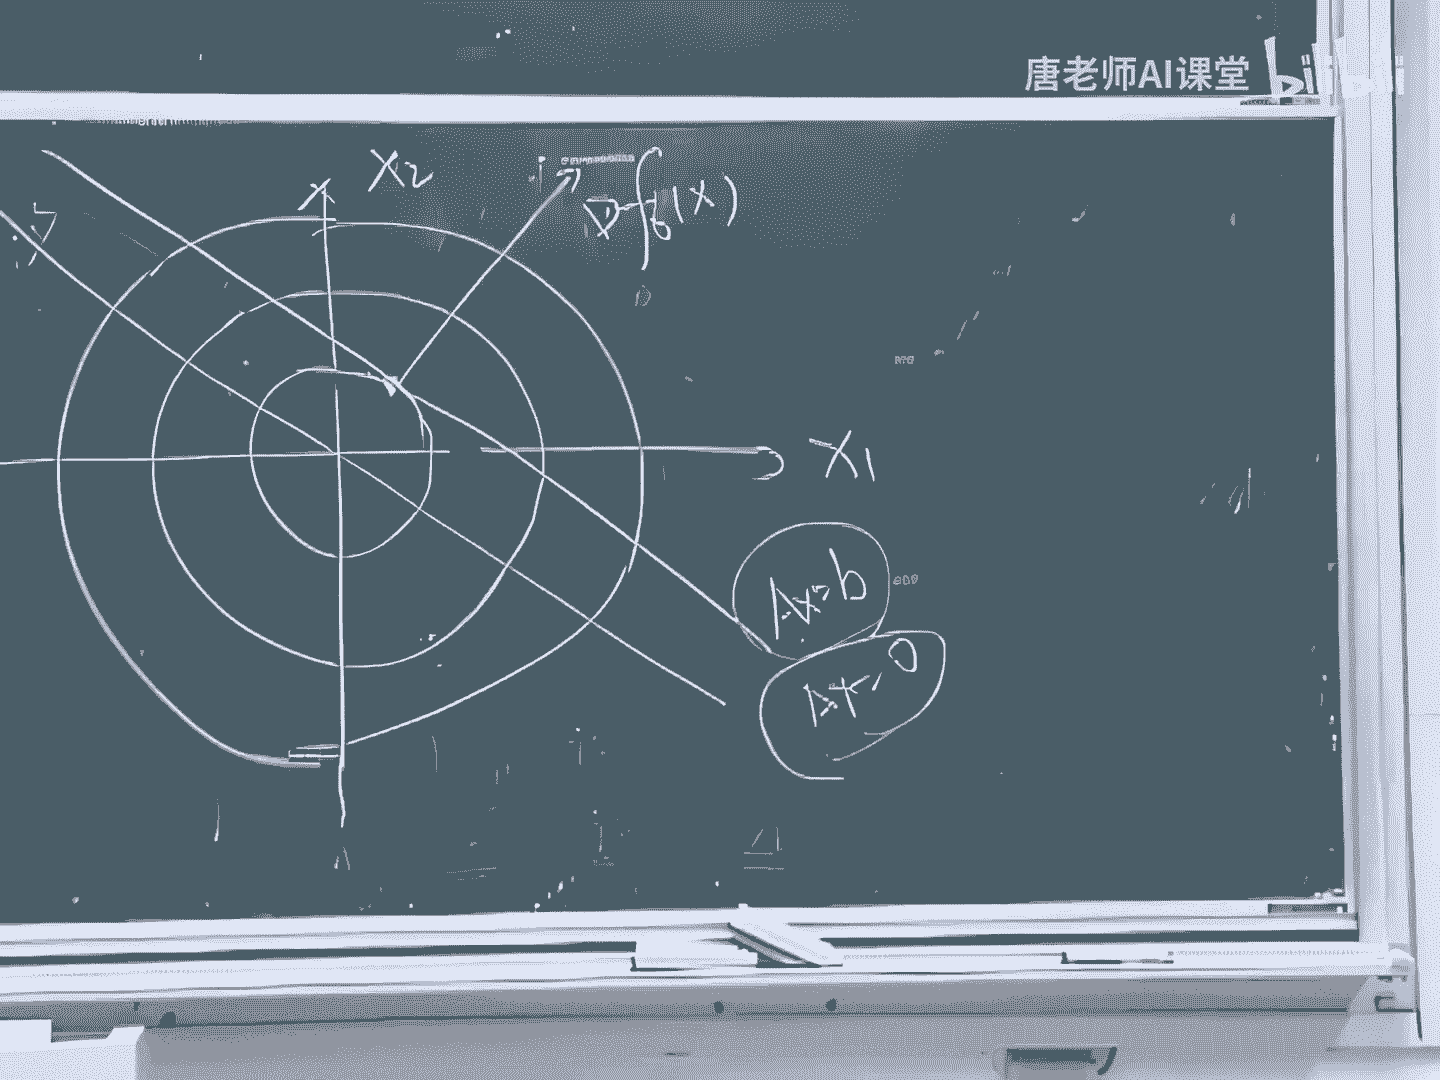 唐老师AI课堂 bilibili
X2
∇f(x)
X1
Ax=b
Ax=0